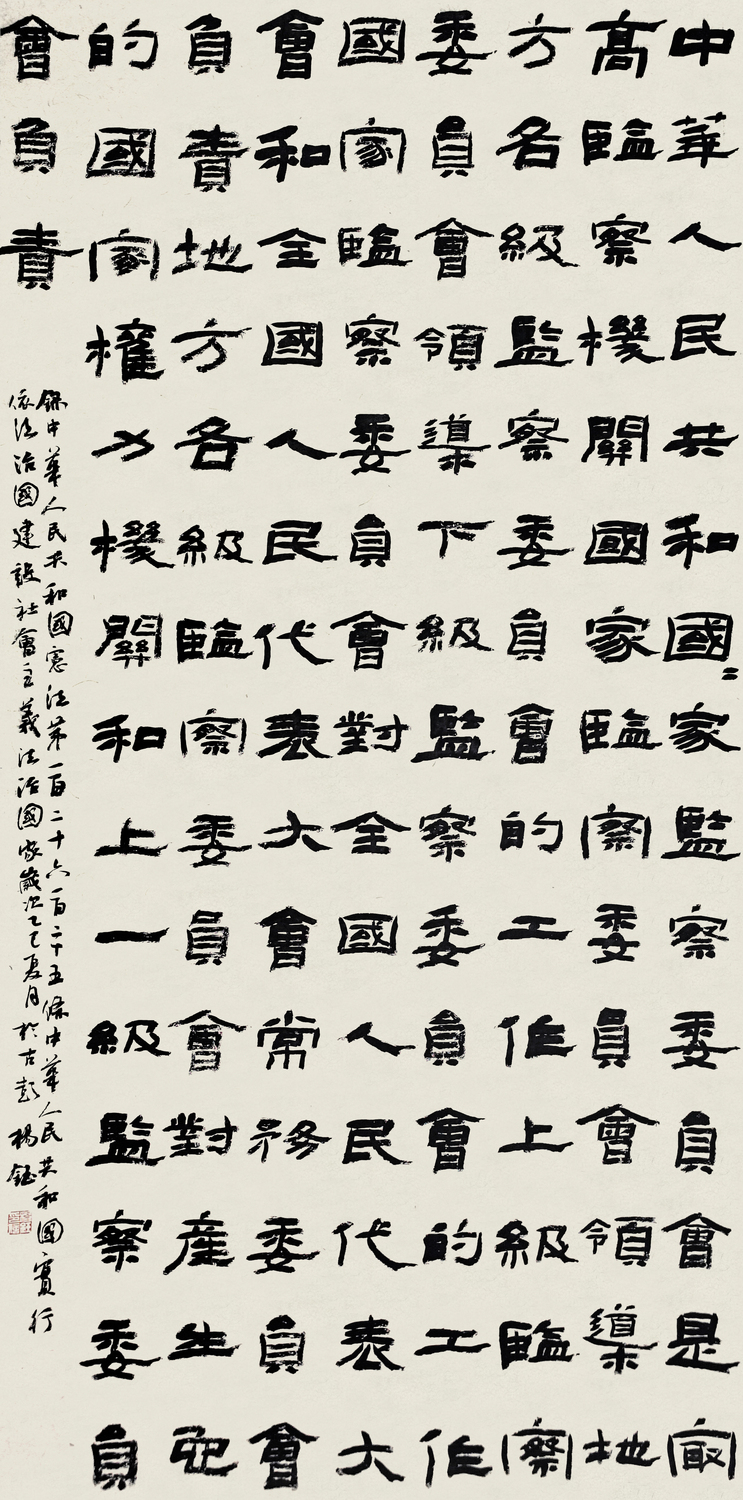 中華人民共和國〻家監察委員會是最
高監察機關國家監察委員會領導地
方各級監察委員會的工作上級監察
委員會領導下級監察委員會的工作
國家監察委員會對全國人民代表大
會和全國人民代表大會常務委員會
負責地方各級監察委員會對產生它
的國家權力機關和上一級監察委員
會負責
錄中華人民共和國憲法第一百二十六一百二十五條中華人民共和國實行
依法治國建設社會主義法治國家歲次乙巳夏月於古彭楊鈺